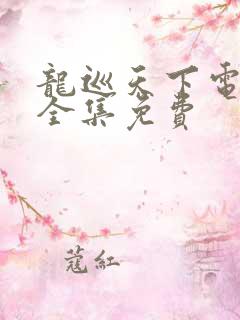 龍巡天下電
全集免費
蔻紅